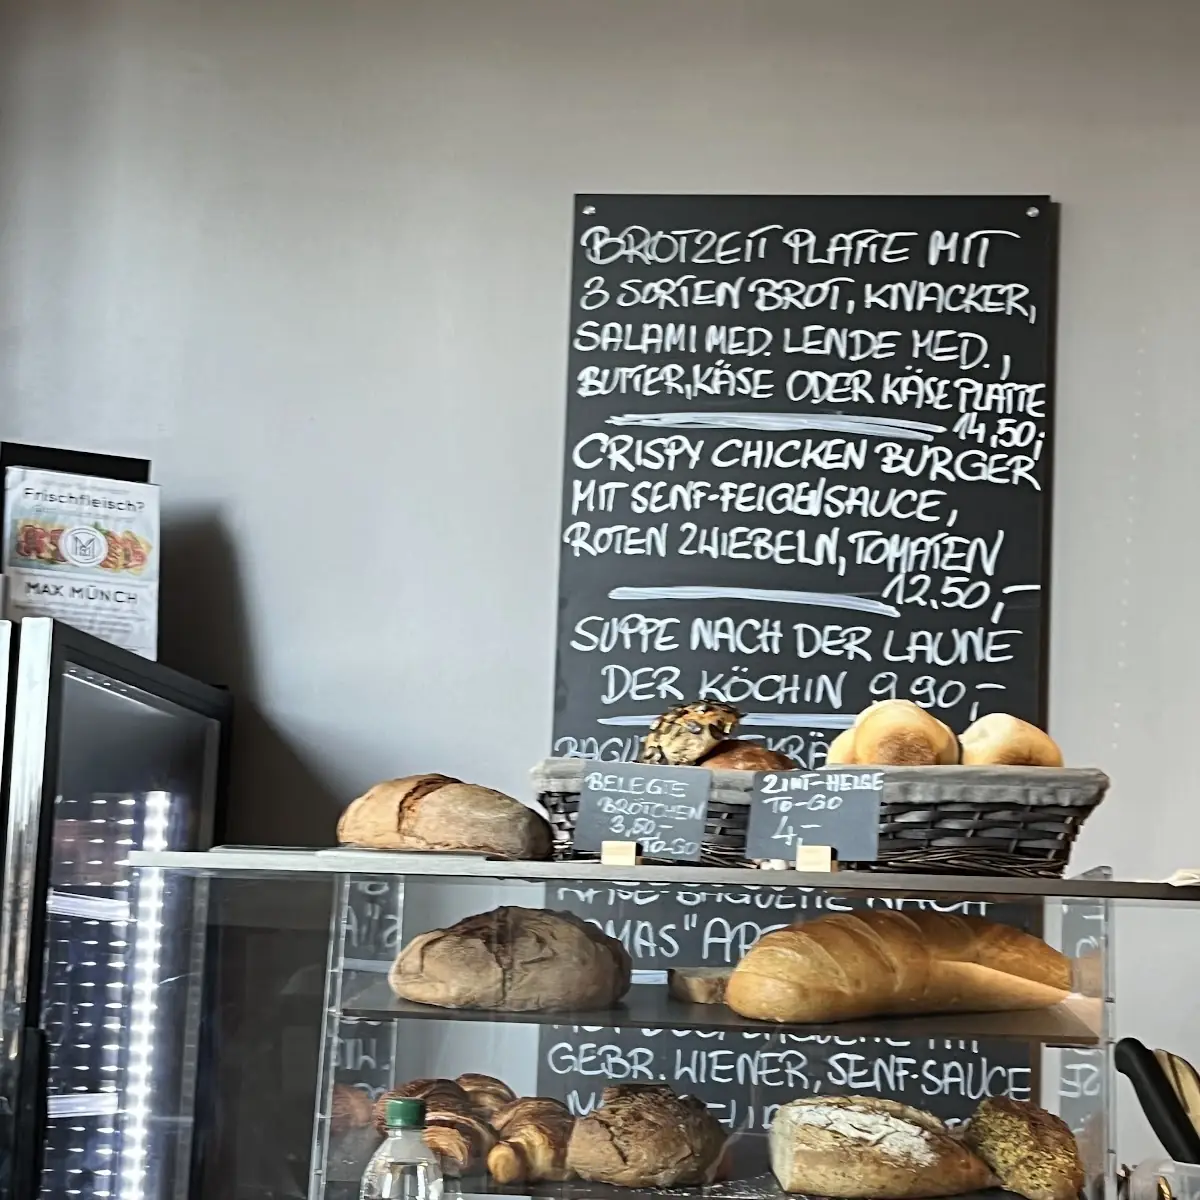 BROTZEIT PLATTE MIT
3 SORTEN BROT, KNACKER,
SALAMI MED. LENDE MED.,
BUTTER, KÄSE ODER KÄSE PLATTE
14,50,-
CRISPY CHICKEN BURGER
MIT SENF-FEIGEN SAUCE,
ROTEN ZWIEBELN, TOMATEN
12.50,-
SUPPE NACH DER LAUNE
DER KÖCHIN 9 90,-
BELEGTE
BRÖTCHEN
3,50,-
TO-GO
ZIMT-HELGE
TO-GO
4,-
KÄSE-BAGUETTE NACH
GEBR. WIENER, SENF-SAUCE
Frischfleisch?
MAX MÜNCH